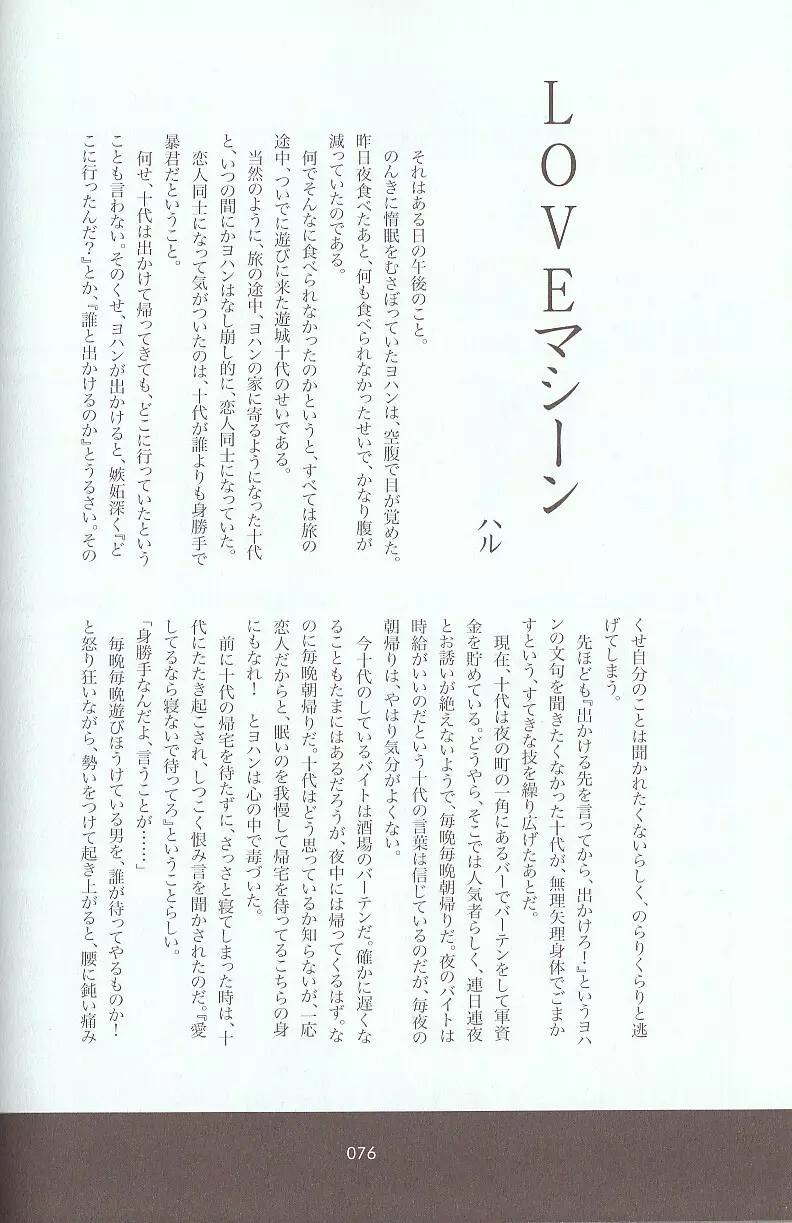 LOVEマシーン
ハル
　それはある日の午後のこと。
　のんきに惰眠をむさぼっていたヨハンは、空腹で目が覚めた。
昨日夜食べたあと、何も食べられなかったせいで、かなり腹が
減っていたのである。
　何でそんなに食べられなかったのかというと、すべては旅の
途中、ついでに遊びに来た遊城十代のせいである。
　当然のように、旅の途中、ヨハンの家に寄るようになった十代
と、いつの間にかヨハンはなし崩し的に、恋人同士になっていた。
　恋人同士になって気がついたのは、十代が誰よりも身勝手で
暴君だということ。
　何せ、十代は出かけて帰ってきても、どこに行っていたという
ことも言わない。そのくせ、ヨハンが出かけると、嫉妬深く『ど
こに行ったんだ？』とか、『誰と出かけるのか』とうるさい。その
くせ自分のことは聞かれたくないらしく、のらりくらりと逃
げてしまう。
　先ほども『出かける先を言ってから、出かけろ！』というヨハ
ンの文句を聞きたくなかった十代が、無理矢理身体でごまか
すという、すてきな技を繰り広げたあとだ。
　現在、十代は夜の町の一角にあるバーでバーテンをして軍資
金を貯めている。どうやら、そこでは人気者らしく、連日連夜
とお誘いが絶えないようで、毎晩毎晩朝帰りだ。夜のバイトは
時給がいいのだという十代の言葉は信じているのだが、毎夜の
朝帰りは、やはり気分がよくない。
　今十代のしているバイトは酒場のバーテンだ。確かに遅くな
ることもたまにはあるだろうが、夜中には帰ってくるはず。な
のに毎晩朝帰りだ。十代はどう思っているか知らないが、一応
恋人だからと、眠いのを我慢して帰宅を待ってるこちらの身
にもなれ！　とヨハンは心の中で毒づいた。
　前に十代の帰宅を待たずに、さっさと寝てしまった時は、十
代にたたき起こされ、しつこく恨み言を聞かされたのだ。『愛
してるなら寝ないで待ってろ』ということらしい。
「身勝手なんだよ、言うことが……」
　毎晩毎晩遊びほうけている男を、誰が待ってやるものか！
と怒り狂いながら、勢いをつけて起き上がると、腰に鈍い痛み
076